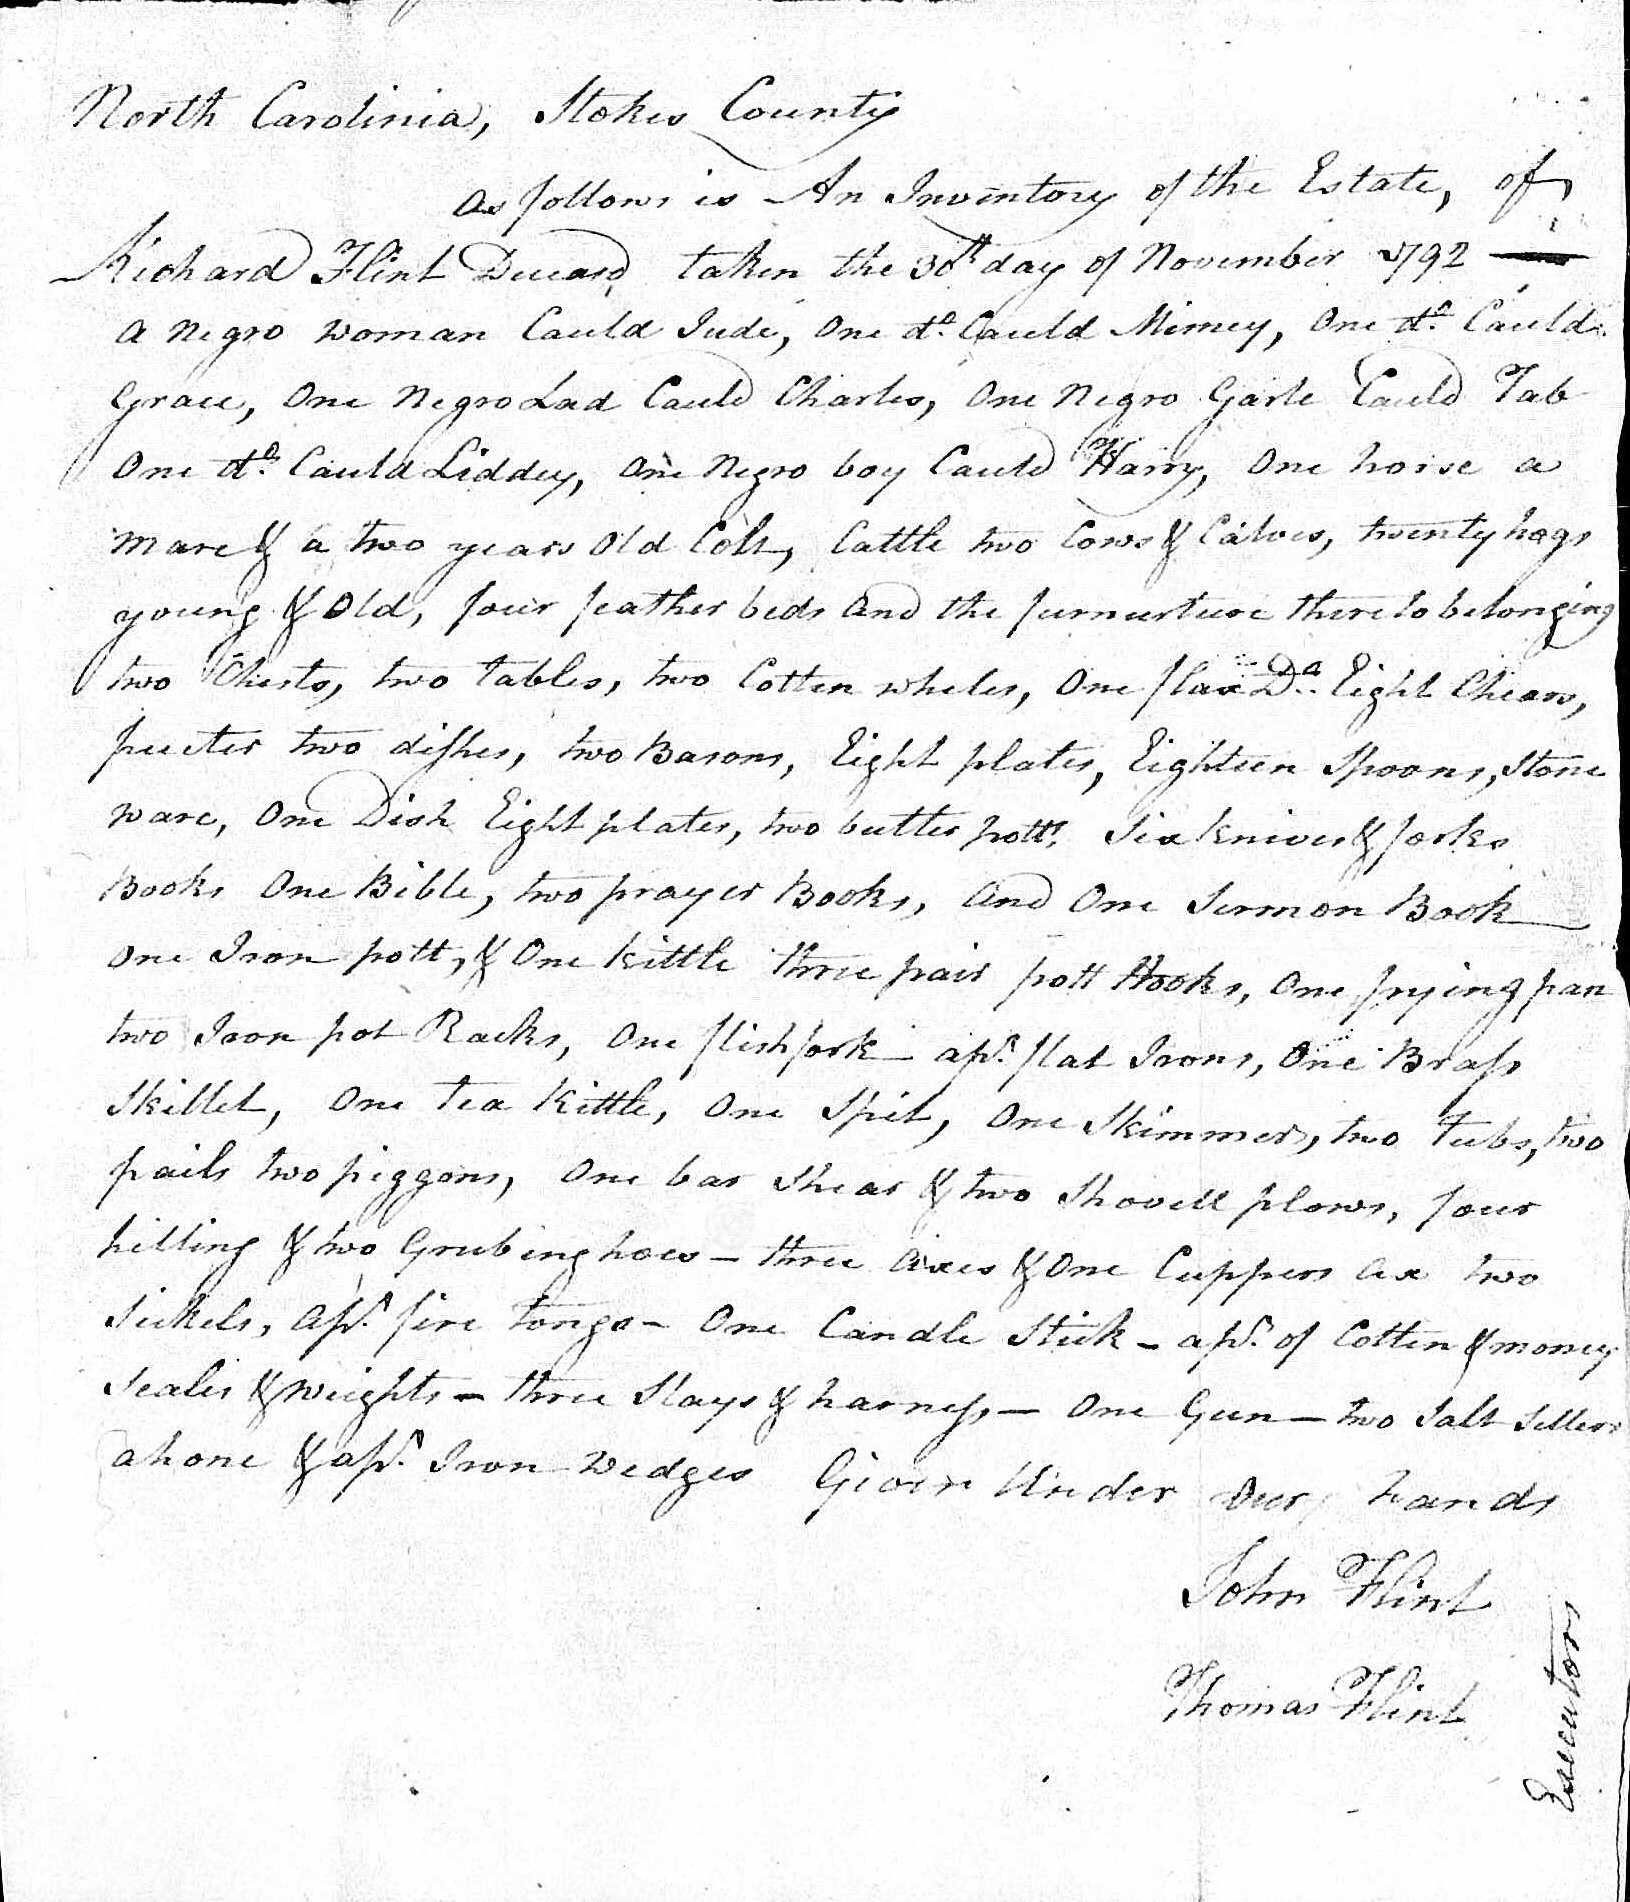 North Carolinia, Stokes County
As follows is An Inventory of the Estate, of
Richard Flint Deceasd, taken the 30th day of November 1792
A Negro woman Cauld Jude, One do. Cauld Mimey, One do. Cauld
Grace, One Negro Lad Cauld Charles, One Negro Garle Cauld Tab
One do. Cauld Liddey, One Negro boy Cauld Harry, One horse a
Mare & a two years Old Colt, Cattle two Cows & Calves, twenty hogs
young & Old, four feather beds and the furnurture there to belonging
two Chests, two tables, two Cotten wheles, One flax Do. Eight Chears,
peuter two dishes, two Basons, Eight plates, Eighteen Spoons, Stone
Ware, One Dish Eight plates, two butter potts, Six knives & forks
Books One Bible, two prayer Books, and One Sermon Book
One Iron pott, & One kittle three pair pott Hooks, One frying pan
two Iron pot Racks, One flish fork apr. flat Irons, One Brass
Skillet, One tea kittle, One Spit, One Skimmer, two tubs, two
pails two piggons, One bar Shear & two Shovell plows, four
hilling & two Grubing hoes - three axes & One Cuppers ax two
Sickels, apr. fire tongs - One Candle Stick - apr. of Cotten & money
Scales & weights - three Slays & harness, - One Gun - two Salt Sellers
a hone & apr. Iron Wedges Given Under Our hands
John Flint
Thomas Flint
Executors